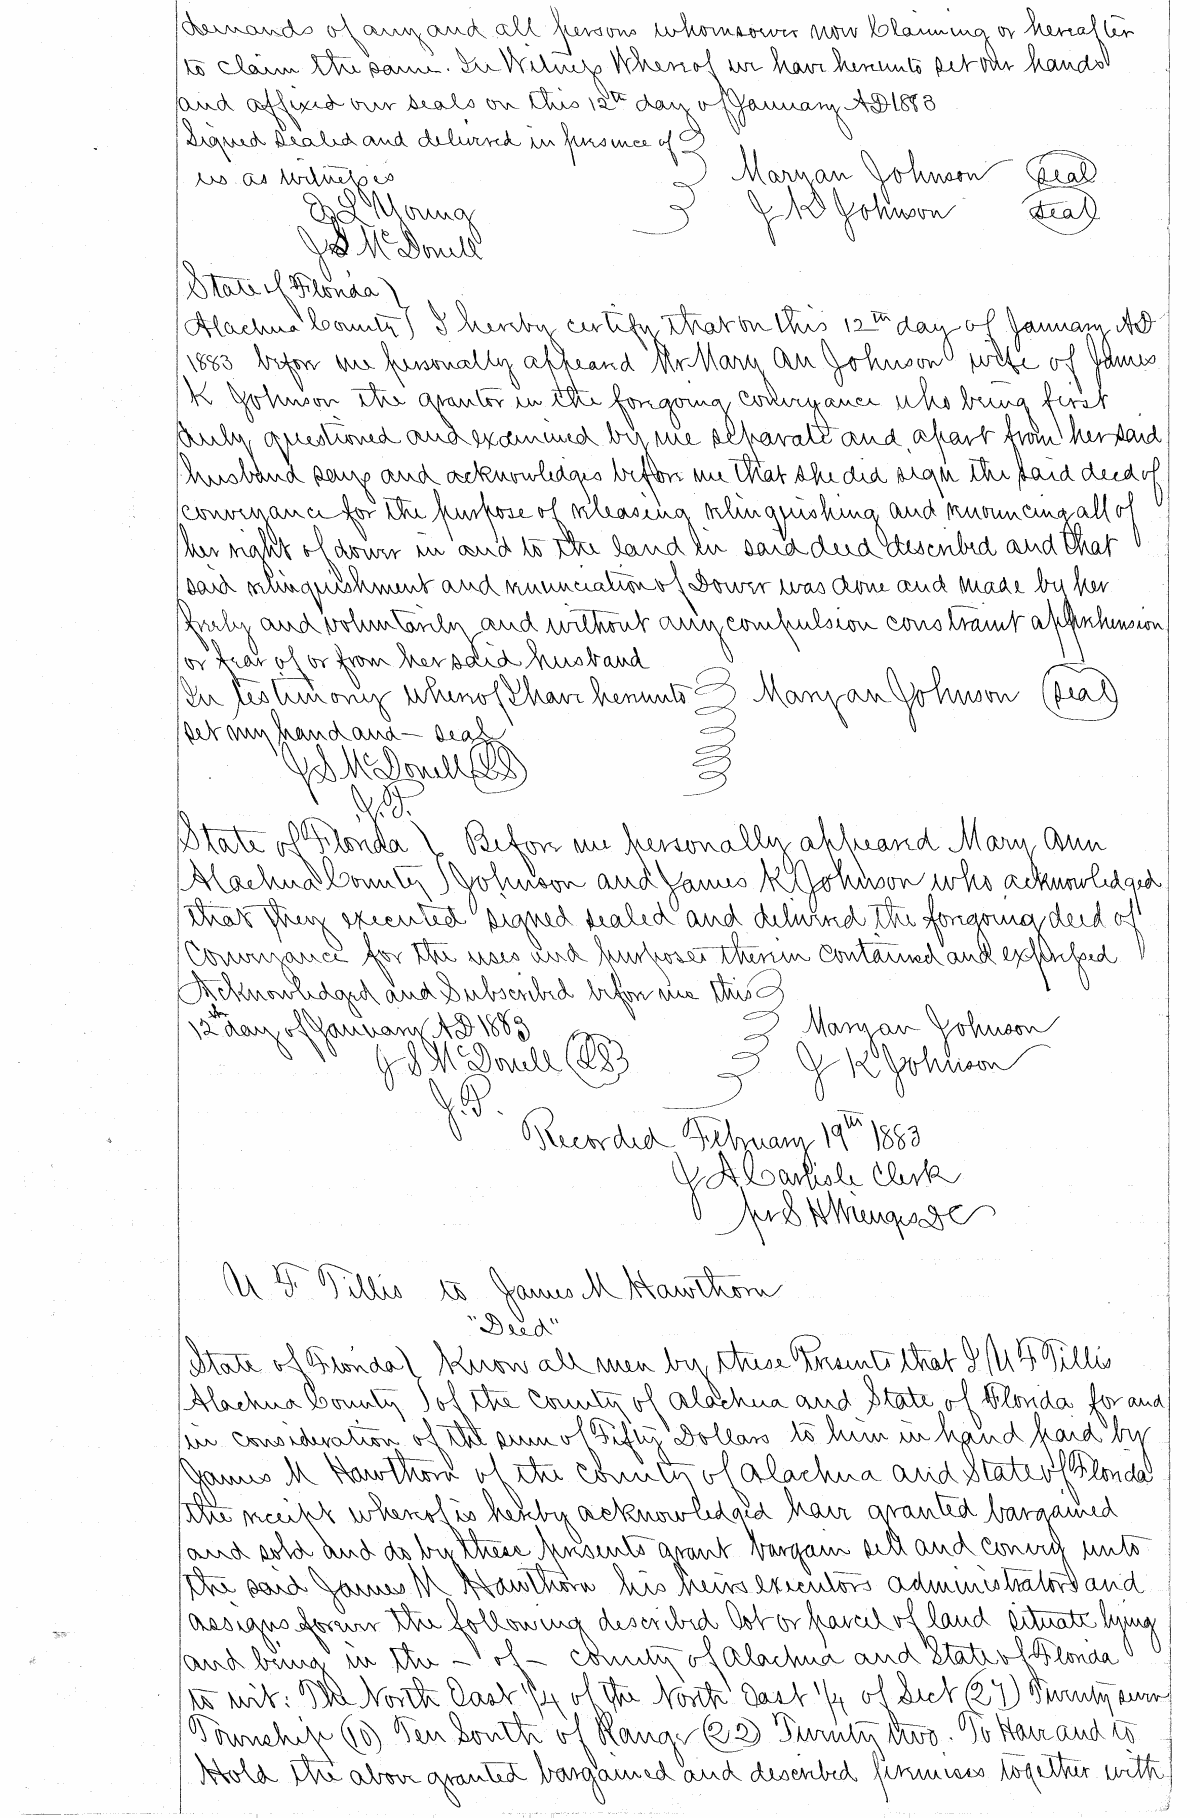 demands of any and all persons whomsower now Claiming or hereafter
to claim the same. In Witness Whereof we have hereunto set our hands
and affixed our seals on this 12th day of January AD 1883
Signed sealed and delivered in presence of
us as witnesses
Maryan Johnson seal
J K Johnson seal
Young
J S McDonell
State of Florida
Alachua County I hereby certify that on this 12th day of January AD
1883 before me personally appeared Mary An Johnson wife of James
K Johnson the grantor in the foregoing conveyance who being first
duly questioned and examined by me separate and apart from her said
husband says and acknowledges before me that she did sign the said deed of
conveyance for the purpose of releasing relinquishing and renouncing all of
her right of dower in and to the land in said deed described and that
said relinquishment and renunciation of Dower was done and made by her
freely and voluntarily and without any compulsion constraint apprehension
or fear of or from her said husband
In testimony whereof I have hereunto Maryan Johnson seal
set my hand and — seal
J S McDonell LS
J.P.
State of Florida Before me personally appeared Mary Ann
Alachua County Johnson and James K Johnson who acknowledged
that they executed signed sealed and delivered the foregoing deed of
Conveyance for the uses and purposes therein contained and expressed
Acknowledged and Subscribed before me this
12th day of January AD 1883 Maryan Johnson
J S McDonell LS J K Johnson
J.P.
Recorded February 19th 1883
J A Carlisle Clerk
per S H Wienges DC
U F Tillis to James M Hawthorn
"Deed"
State of Florida Know all men by these Presents that I U F Tillis
Alachua County of the County of Alachua and State of Florida for and
in consideration of the sum of Fifty Dollars to him in hand paid by
James M Hawthorn of the county of Alachua and State of Florida
the receipt whereof is hereby acknowledged have granted bargained
and sold and do by these presents grant bargain sell and convey unto
the said James M Hawthorn his heirs executors administrators and
assigns forever the following described lot or parcel of land situate lying
and being in the — of — county of Alachua and State of Florida
to wit: The North East 1/4 of the North East 1/4 of Sect (27) Twenty seven
Township (10) Ten South of Range (22) Twenty two. To Have and to
Hold the above granted bargained and described premises together with